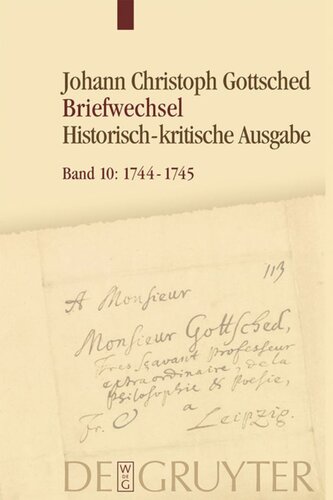 Johann Christoph Gottsched
Briefwechsel
Historisch-kritische Ausgabe
Band 10: 1744-1745
113
A Monsieur
Monsieur Gottsched,
Tres Scavant Professeur
extraordinaire, de la
Philosophie & Poesie,
Fr. a
Leipzig.
DE GRUYTER
W DE G